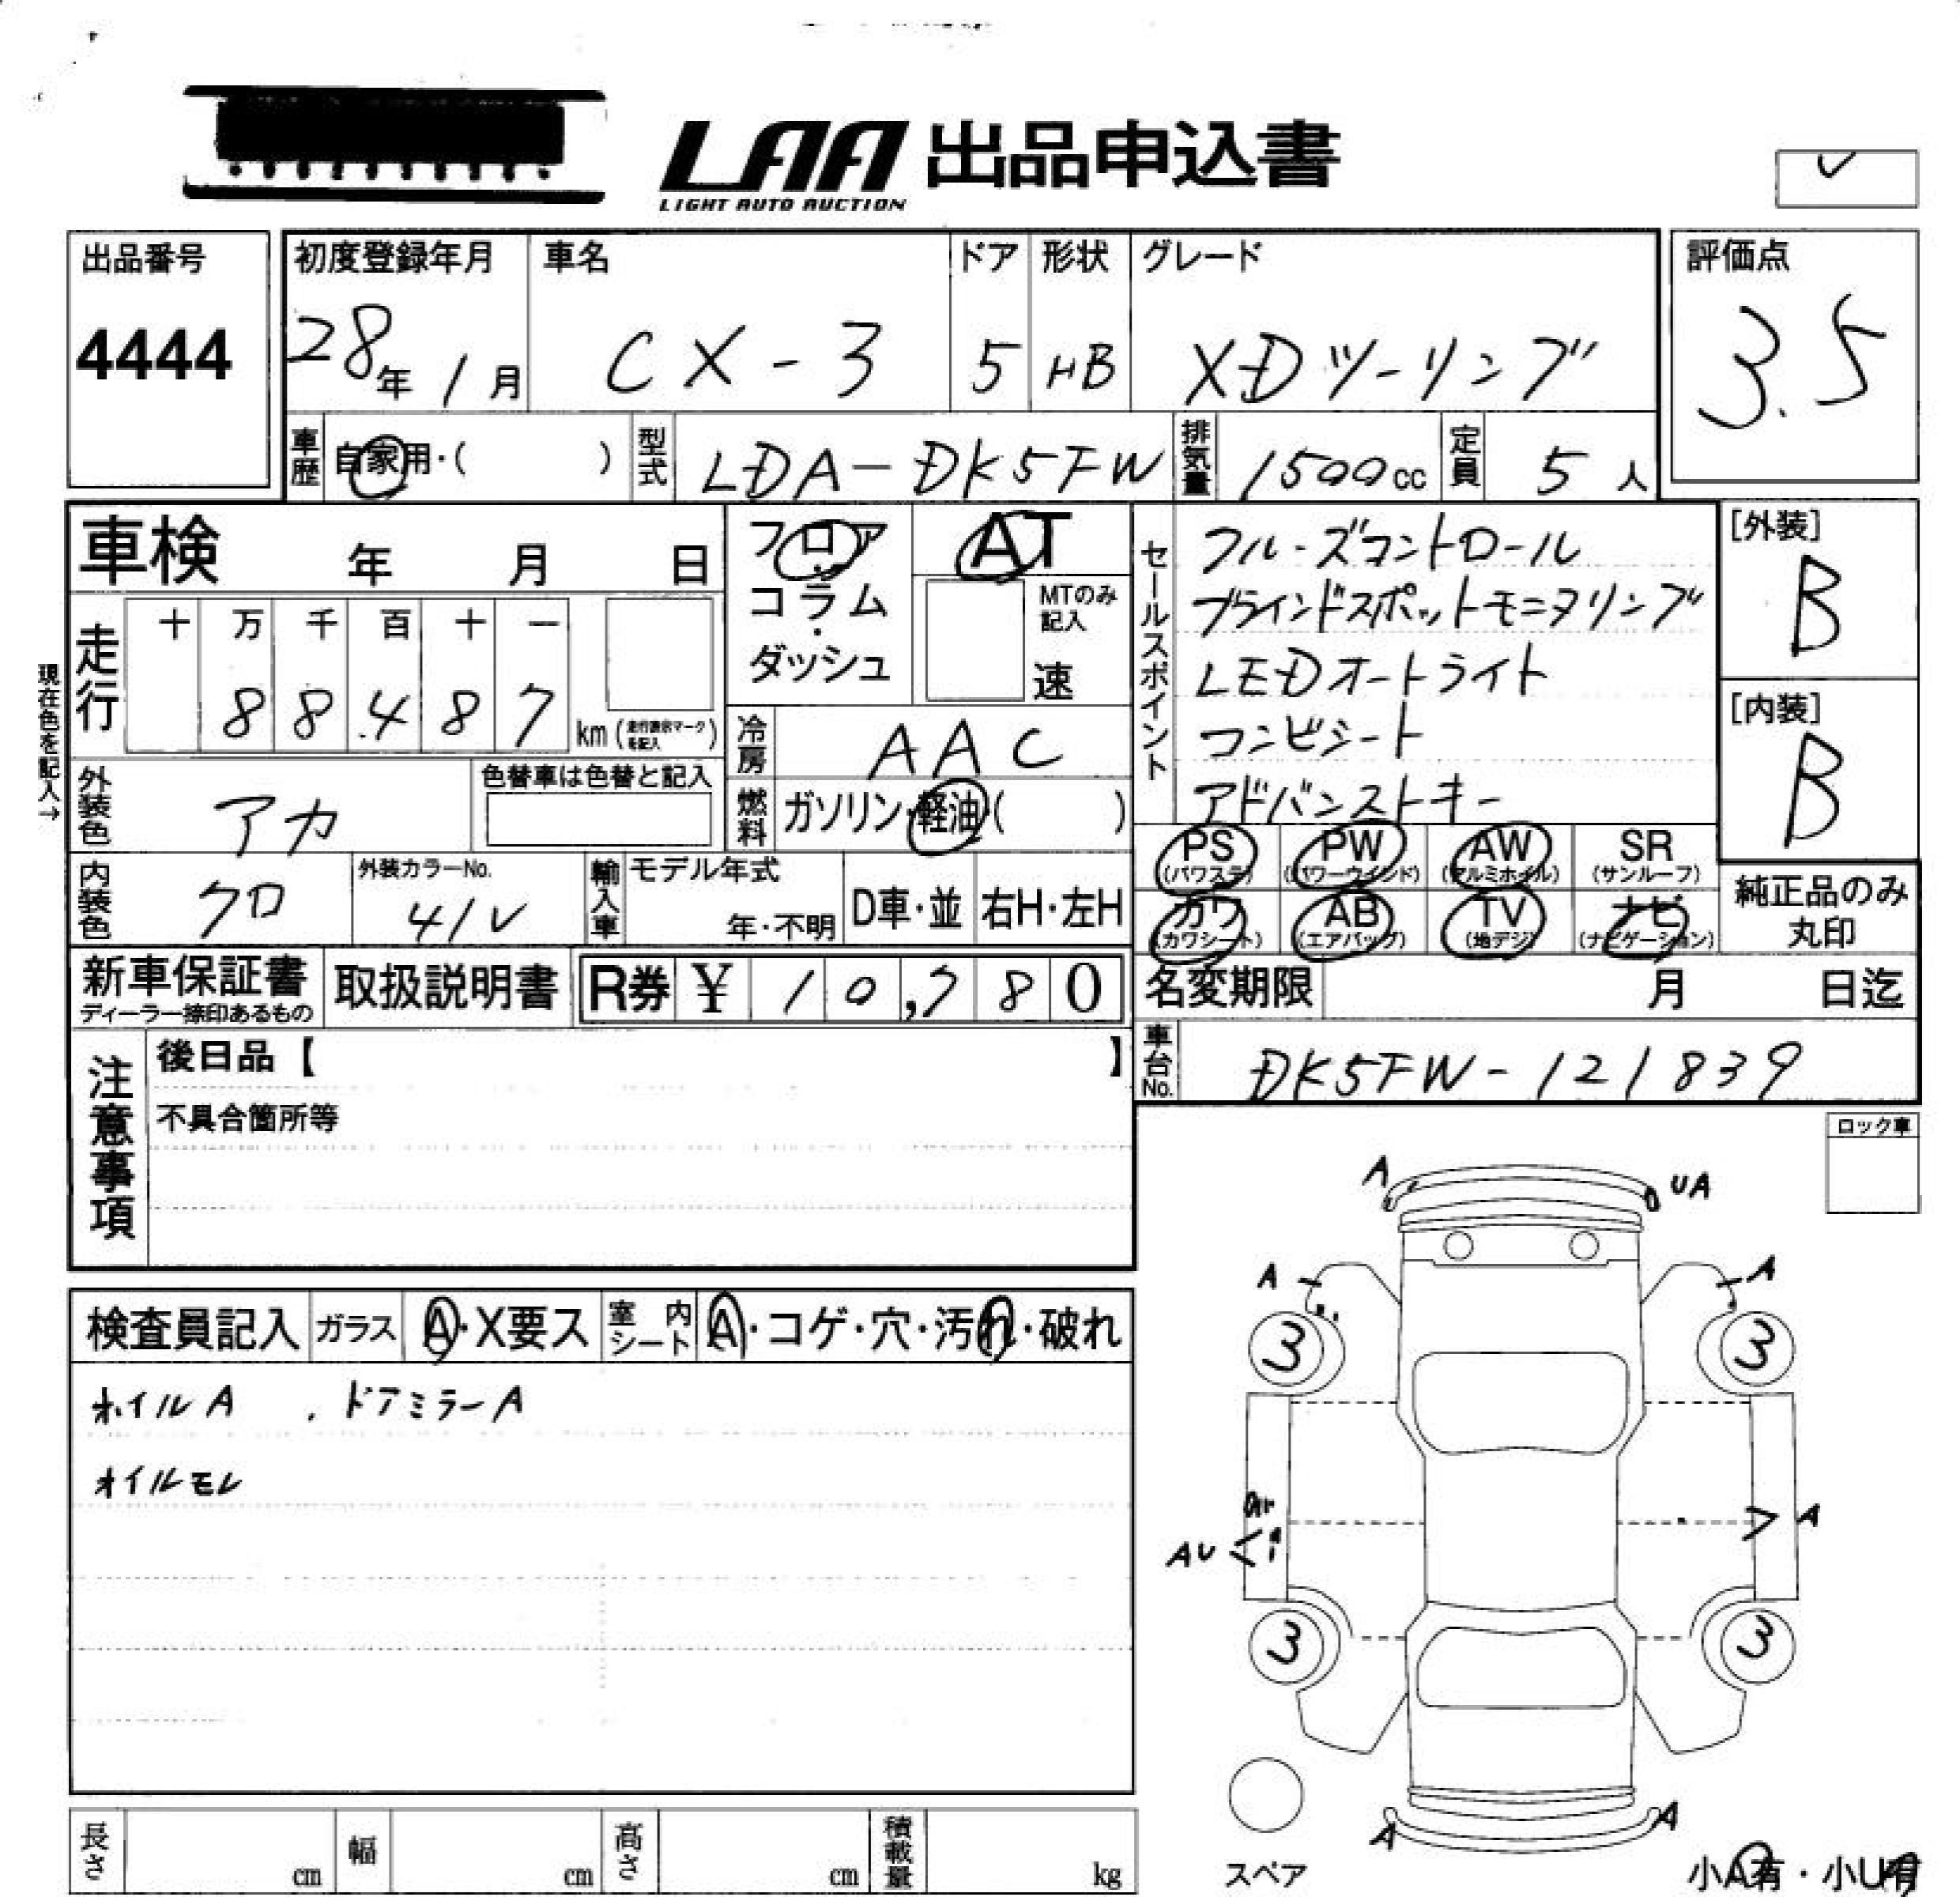 LAA 出品申込書
LIGHT AUTO AUCTION
出品番号 初度登録年月 車名 ドア 形状 グレード 評価点
4444 28年 1月 CX-3 5 HB XDツーリング 3.5
車歴 自家用・( ) 型式 LDA-DK5FW 排気量 1500cc 定員 5人
車検 年 月 日
フロア・コラム・ダッシュ
AT
MTのみ記入
速
セールスポイント
クルーズコントロール
ブラインドスポットモニタリング
LEDオートライト
コンビシート
アドバンストキー
[外装]
B
[内装]
B
現在色を記入→
走行 十 万 千 百 十 一
88487 km (走行譲示マークを記入)
冷房 AAC
外装色 アカ 色替車は色替と記入
燃料 ガソリン・軽油・( )
内装色 クロ 外装カラーNo. 41V
輸入車 モデル年式 年・不明 D車・並 右H・左H
PS (パワステ) PW (パワーウインド) AW (アルミホイル) SR (サンルーフ)
カワ (カワシート) AB (エアバッグ) TV (地デジ) ナビ (ナビゲーション)
純正品のみ
丸印
新車保証書 ディーラー捺印あるもの 取扱説明書 R券 ¥ 10,780
名変期限 月 日迄
車台No. DK5FW-121839
注意事項
後日品【 】
不具合箇所等
ロック車
検査員記入 ガラス A・X要ス 室内シート A・コゲ・穴・汚れ・破れ
ホイルA . ドアミラーA
オイルモレ
A UA
A A
3 3
A
AU
3 3
A A
スペア
小A有・小U有
長さ cm 幅 cm 高さ cm 積載量 kg